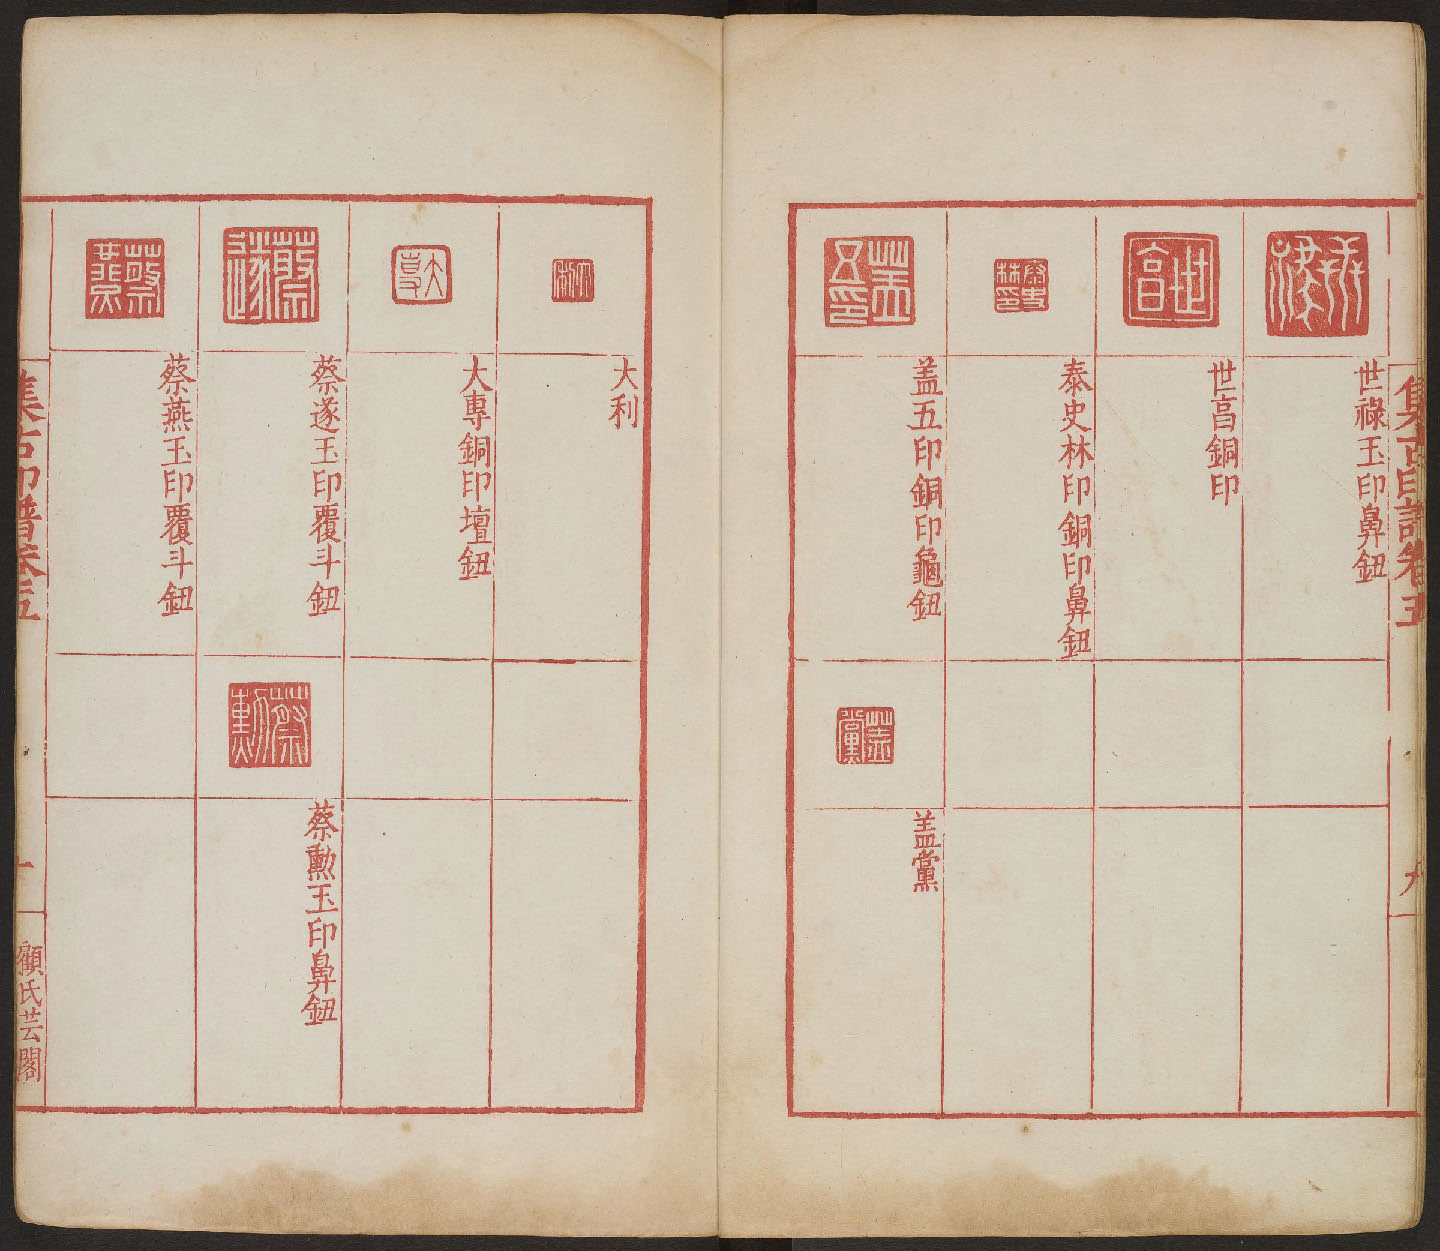 集古印譜卷五
世祿玉印鼻鈕
世亯銅印
泰史林印銅印鼻鈕
盖五印銅印龜鈕
盖黨
大利
大專銅印壇鈕
蔡遂玉印覆斗鈕
蔡勲玉印鼻鈕
蔡燕玉印覆斗鈕
集古印譜卷五
顧氏芸閣